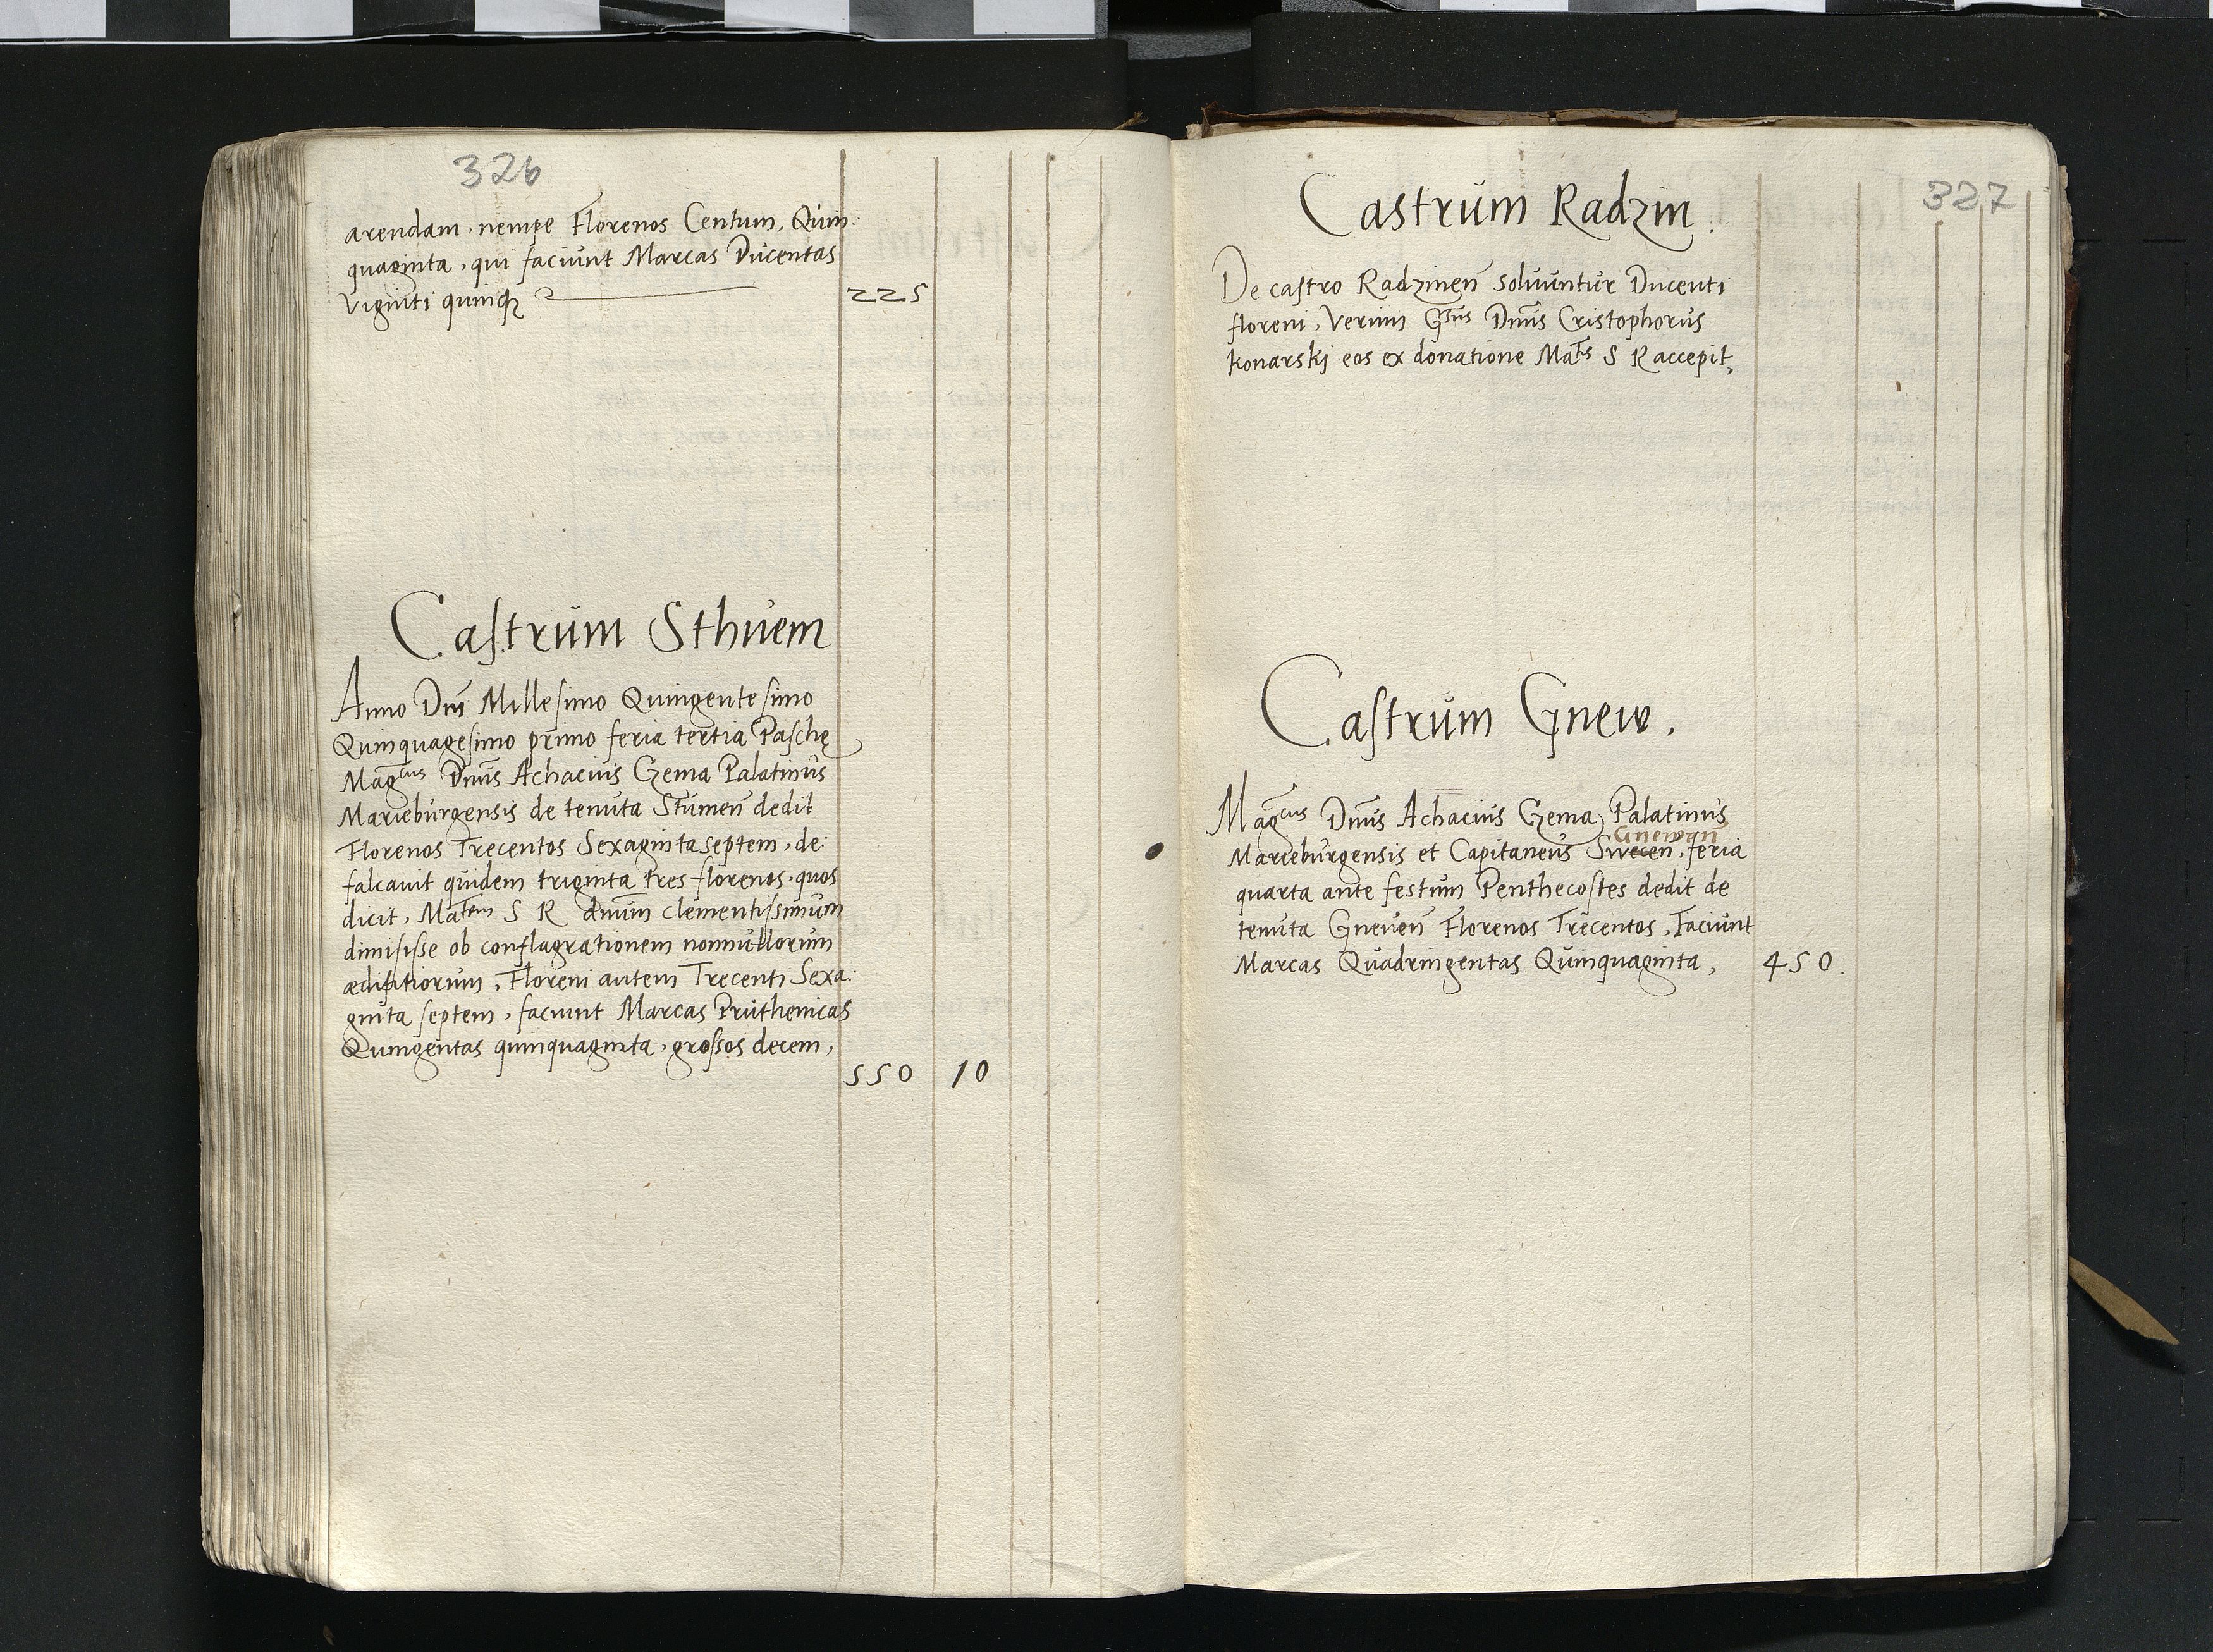 326
arendam, nempe Florenos Centum, Quin:
quaginta, qui faciunt Marcas Ducentas
viginti quinqꝫ 225
Castrum Sthuem
Anno Dnī Millesimo Quingentesimo
Quinquagesimo primo feria tertia Paschę
Mag^cus Dnūs Achacius Czema Palatinus
Marieburgensis de tenuta Stumen̄ dedit
Florenos Trecentos Sexaginta septem, de:
falcauit quidem triginta tres florenos, quos
dicit, Ma^tem S R dnūm clementissimum
dimisisse ob conflagrationem nonnullorum
ædifitiorum, Floreni autem Trecenti Sexa:
ginta septem, faciunt Marcas Pruthenicas
Quingentas quinquaginta, grossos decem,
550 10
327
Castrum Radzin.
De castro Radzinen̄ soluuntur Ducenti
floreni, Verum G^sus Dnūs Cristophorus
Konarskj eos ex donatione Ma^tis S R accepit,
Castrum Gnew.
Mag^cus Dnūs Achacius Czema Palatinus
Gneweñ
Marieburgensis et Capitaneus Swecen, feria
quarta ante festum Penthecostes dedit de
tenuta Gneuen̄ Florenos Trecentos, Faciunt
Marcas Quadringentas Quinquaginta, 450.